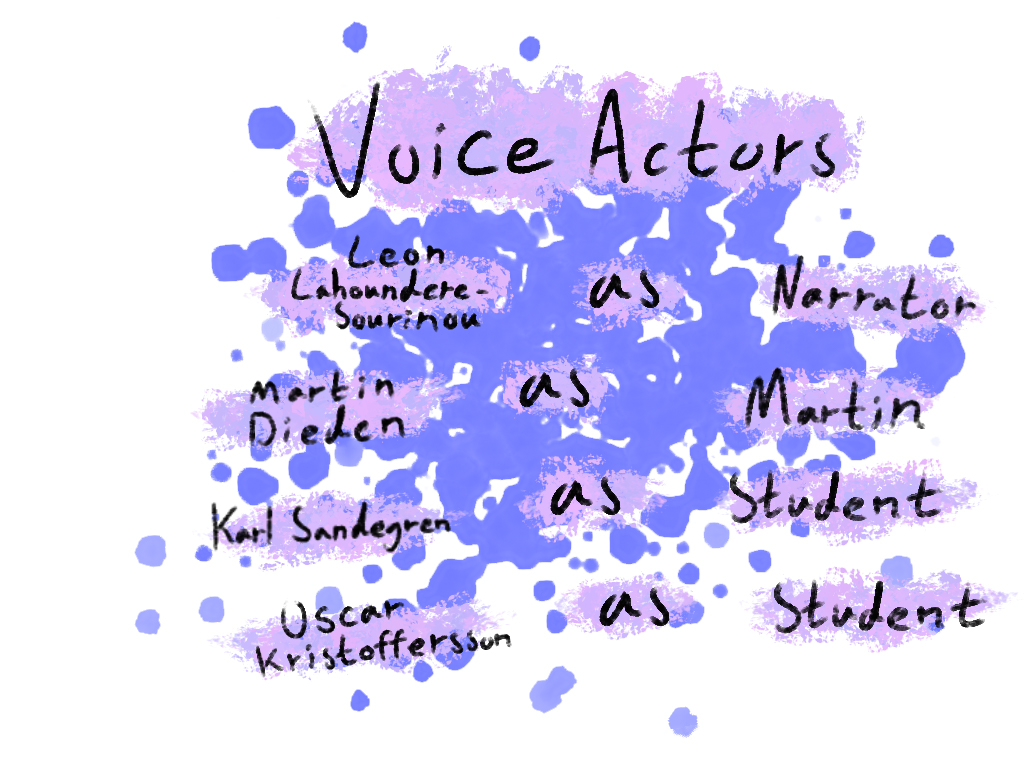 Voice Actors
Leon
Lahoundere-
Sourinou
as
Narrator
Martin
Dieden
as
Martin
Karl Sandegren
as
Student
Oscar
Kristoffersson
as
Student